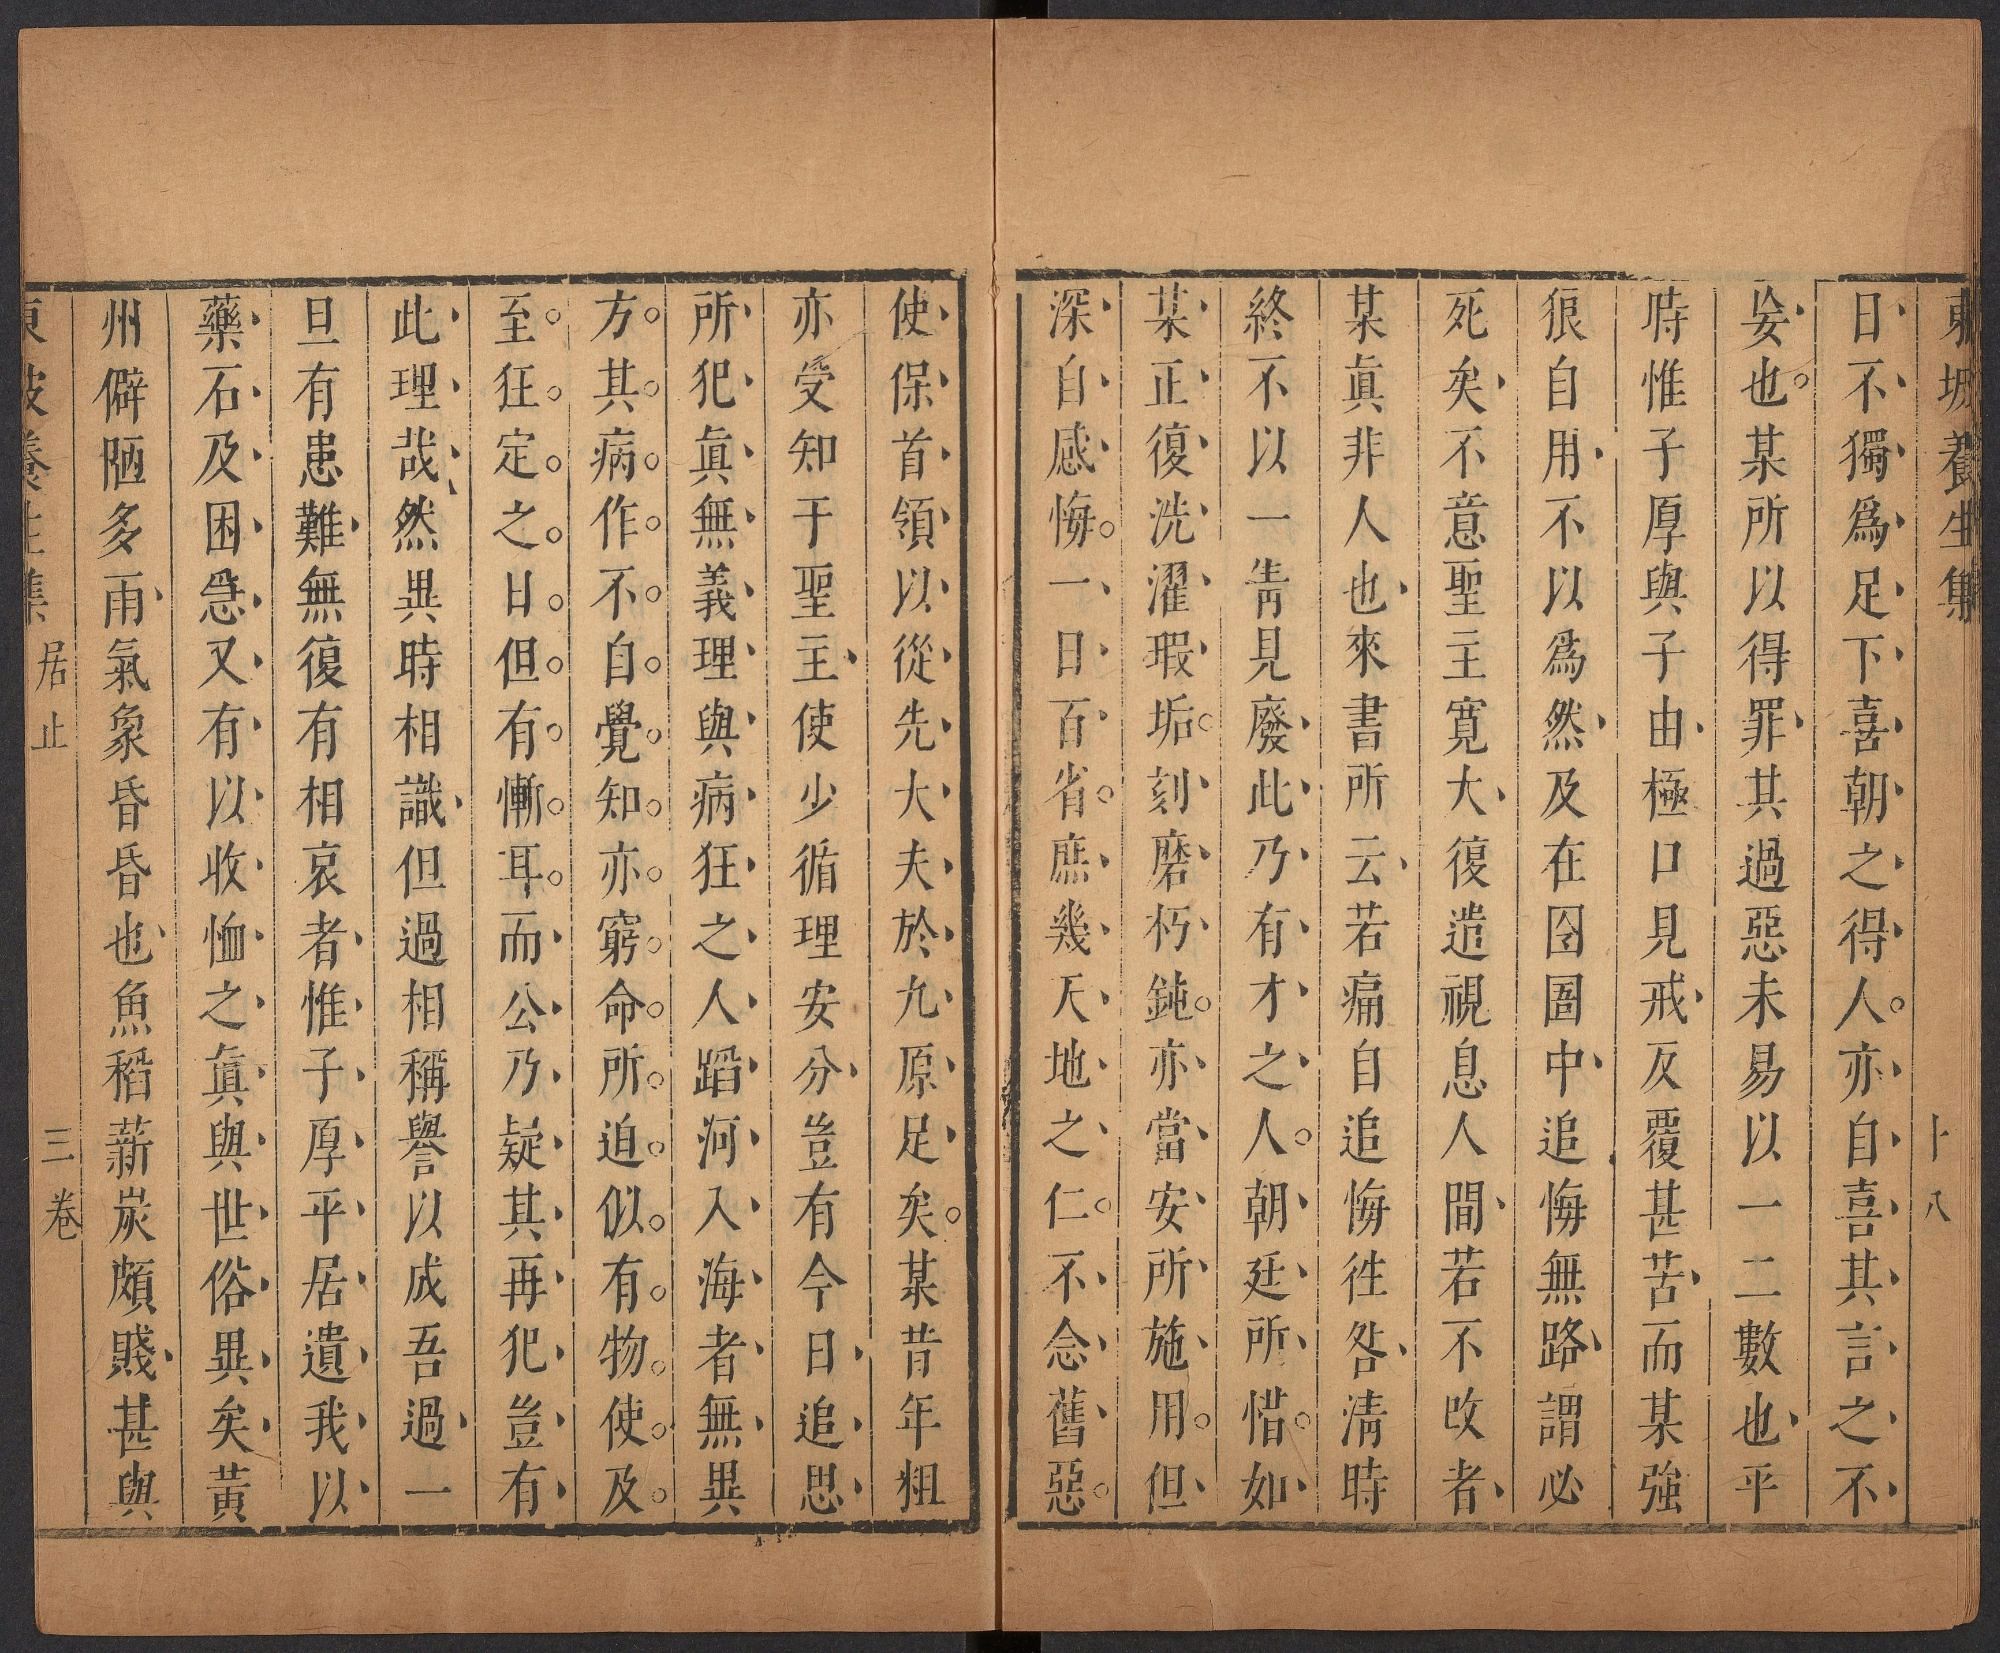 東坡養生集
十八
日不獨爲足下喜朝之得人亦自喜其言之不
妄也某所以得罪其過惡未易以一二數也平
時惟子厚與子由極口見戒反覆甚苦而某強
狠自用不以爲然及在囹圄中追悔無路謂必
死矣不意聖主寬大復遣視息人間若不改者
某眞非人也來書所云若痛自追悔徃咎清時
終不以一眚見廢此乃有才之人朝廷所惜如
某正復洗濯瑕垢刻磨朽鈍亦當安所施用但
深自感悔一日百省庶幾天地之仁不念舊惡
使保首領以從先大夫於九原足矣某昔年粗
亦受知于聖主使少循理安分豈有今日追思
所犯眞無義理與病狂之人蹈河入海者無異
方其病作不自覺知亦窮命所迫似有物使及
至狂定之日但有慚耳而公乃疑其再犯豈有
此理哉然異時相識但過相稱譽以成吾過一
旦有患難無復有相哀者惟子厚平居遺我以
藥石及困急又有以收恤之眞與世俗異矣黃
州僻陋多雨氣象昏昏也魚稻薪炭頗賤甚與
東坡養生集 居止 三卷